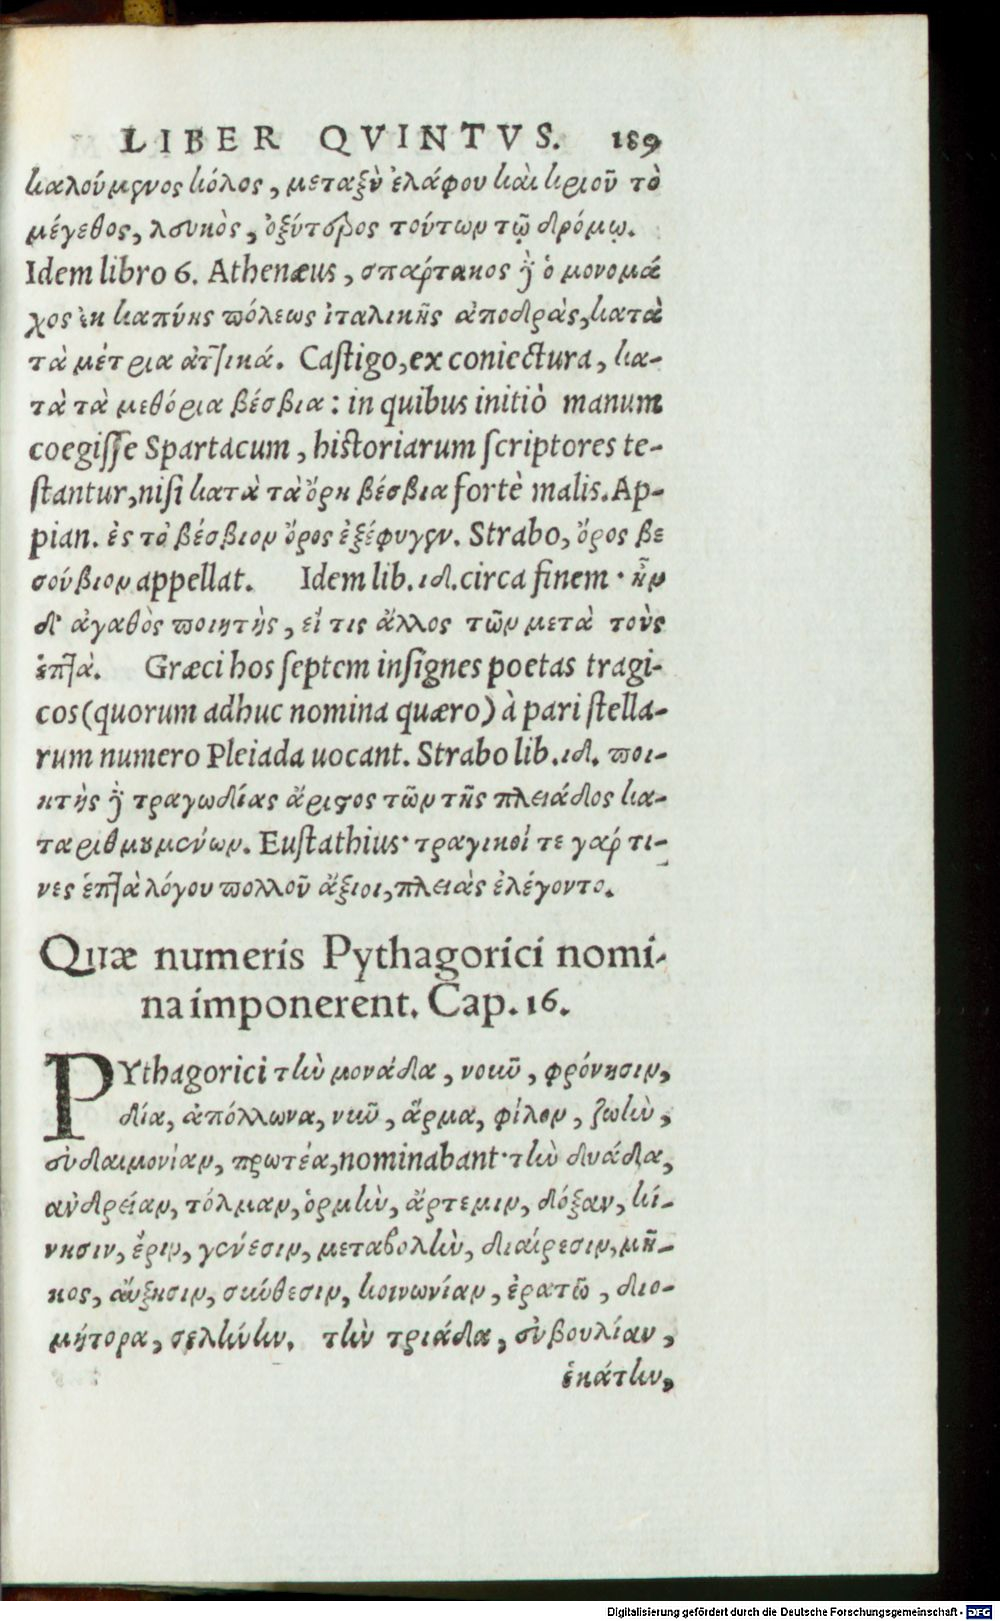 LIBER QVINTVS. 189
καλούμενος κόλος, μεταξὺ ἐλάφου καὶ κριοῦ τὸ
μέγεθος, λευκὸς, ὀξύτερος τούτων τῷ δρόμῳ.
Idem libro 6. Athenæus, σπαρτακος δὲ ὁ μονομά
χος ἐκ καπύης πόλεως ἰταλικῆς ἀποδρὰς, κατὰ
τὰ μέτρια ἀττικά. Castigo, ex coniectura, κα-
τὰ τὰ μεθόρια βέσβια: in quibus initiò manum
coegisse Spartacum, historiarum scriptores te-
stantur, nisi κατὰ τὰ ὄρη βέσβια fortè malis. Ap-
pian. ἐς τὸ βέσβιον ὄρος ἐξέφυγεν. Strabo, ὄρος βε
σούβιον appellat. Idem lib. ιδ. circa finem · ἦν
δ' ἀγαθὸς ποιητὴς, εἴ τις ἄλλος τῶν μετὰ τοὺς
ἑπτὰ. Græci hos septem insignes poetas tragi-
cos (quorum adhuc nomina quæro) à pari stella-
rum numero Pleiada uocant. Strabo lib. ιδ. ποι-
ητὴς δὲ τραγῳδίας ἄριστος τῶν τῆς πλειάδος κα-
ταριθμουμένων. Eustathius· τραγικοί τε γάρ τι-
νες ἑπτὰ λόγου πολλοῦ ἄξιοι, πλειὰς ἐλέγοντο.
Quæ numeris Pythagorici nomi-
na imponerent. Cap. 16.
PYthagorici τὴν μονάδα, νοῦν, φρόνησιν,
δία, ἀπόλλωνα, νηῦ, ἅρμα, φίλον, ζωὴν,
εὐδαιμονίαν, πρωτέα, nominabant· τὴν δυάδα,
ἀνδρείαν, τόλμαν, ὁρμὴν, ἄρτεμιν, δόξαν, κί-
νησιν, ἔριν, γένεσιν, μεταβολὴν, διαίρεσιν, μῆ-
κος, αὔξησιν, σύνθεσιν, κοινωνίαν, ἐρατὼ, διο-
μήτορα, σελήνην. τὴν τριάδα, εὐβουλίαν,
ἑκάτην,
Digitalisierung gefördert durch die Deutsche Forschungsgemeinschaft - DFG